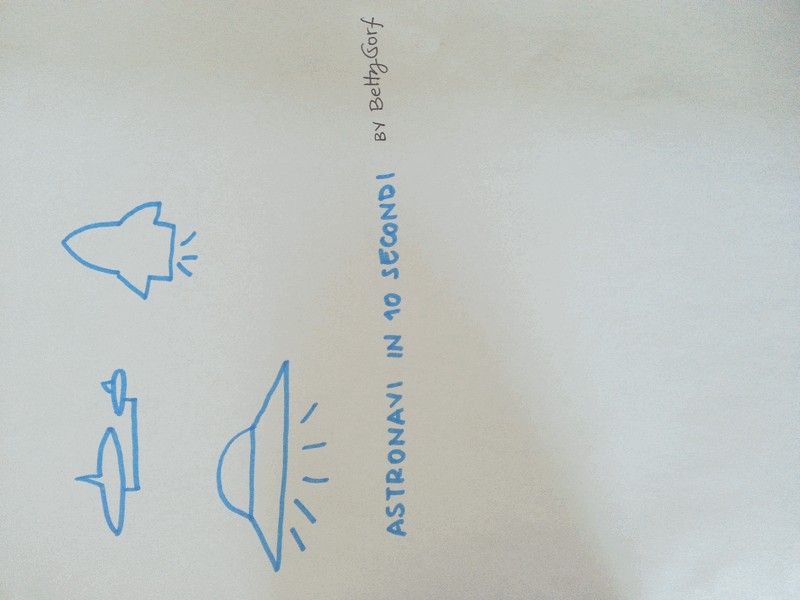 ASTRONAVI IN 10 SECONDI BY BettyGorf